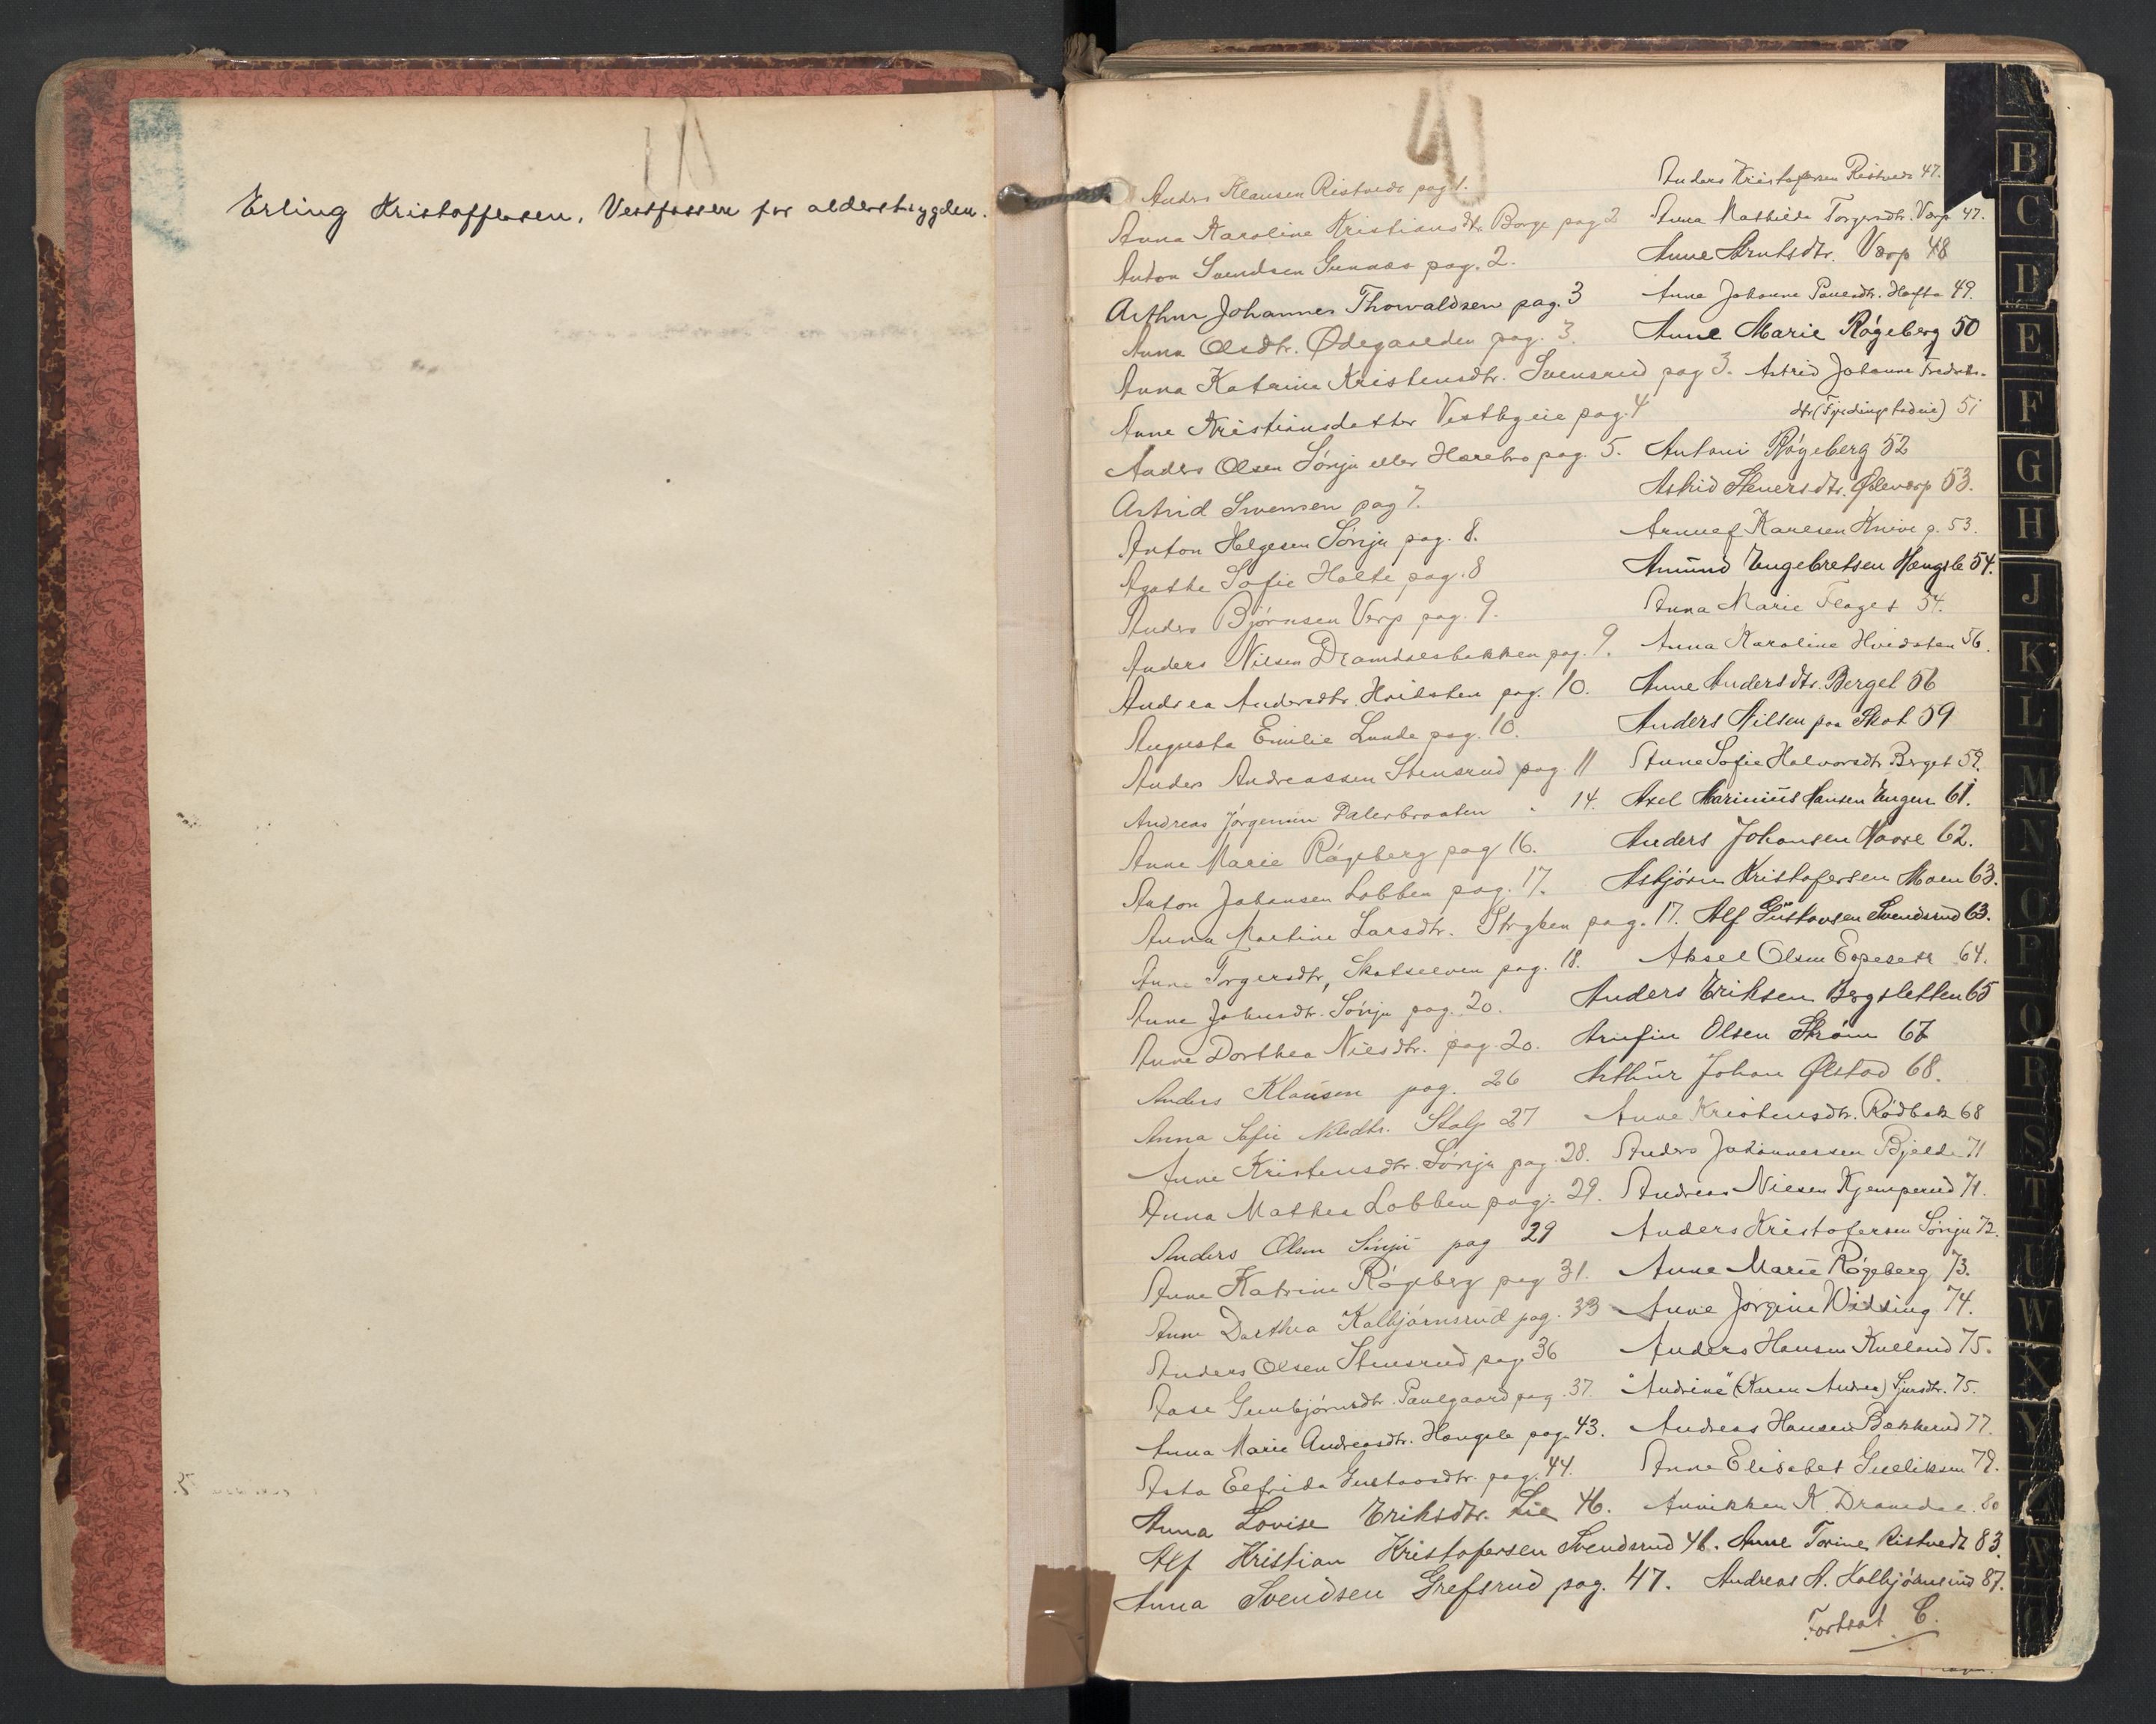 Erling Kristoffersen, Vestfossen for alderstrygden.
Anders Klausen Ristvedt pag 1.
Anna Karoline Kristiansdtr. Borge pag 2
Anton Svendsen Gunnæs pag. 2.
Arthur Johannes Thorvaldsen pag. 3
Anna Olsdtr. Ødegaarden pag. 3.
Anna Katrine Kristensdtr. Svensrud pag 3.
Anne Kristiansdatter Vestbyeie pag. 4
Anders Olsen Sönju eller Horebro pag. 5.
Astrid Svensen pag 7.
Anton Helgesen Sönju pag. 8.
Agathe Sofie Holte pag. 8
Anders Björnsen Verp pag. 9.
Anders Nilsen Dramdalsbakken pag. 9.
Andrea Andersdtr. Hvidsten pag. 10.
Augusta Emilie Lunde pag. 10.
Anders Andreassen Stensrud pag. 11
Andreas Jörgensen Dalerbraaten " 14.
Anne Marie Rögeberg pag 16.
Anton Johansen Lobben pag. 17.
Anna Martine Larsdtr. Stryken pag. 17.
Anne Torgersdtr, Skotselven pag. 18.
Anne Johnsdtr. Sönju pag. 20.
Anne Dorthea Nilsdtr. pag. 20.
Anders Klausen pag. 26
Anna Sofie Nilsdtr. Stalp 27
Anne Kristensdtr. Sönju pag. 28.
Anna Mathea Lobben pag. 29.
Anders Olsen Sönju pag 29
Anne Katrine Rögeberg pag 31.
Anne Dorthea Kolbjörnsrud pag. 33
Anders Olsen Stensrud pag. 36
Aase Gunbjörnsdtr. Paulgaard pag. 37.
Anna Marie Andreasdtr. Hængsle pag. 43.
Asta Elfrida Gustavsdtr. pag. 44.
Anna Lovise Eriksdtr. Lie 46.
Alf Kristian Kristofersen Svendsrud 46.
Anna Svendsen Grefsrud pag. 47.
Anders Kristofersen Ristvedt 47.
Anna Mathilde Torgersdtr. Værp 47.
Anne Arntsdtr. Værp 48
Anne Johanne Paulsdtr. Hofta 49.
Anne Marie Rögeberg 50
Astrid Johanne Fredriks-
dtr (Fjerdingstadeie) 51
Antoni Rögeberg 52
Astrid Steversdtr. Ødeværp 53.
Arnulf Karlsen Knive p. 53.
Amund Engebretsen Hængsle 54.
Anna Marie Flaget 54.
Anna Karoline Hvidsten 56.
Anne Andersdtr. Berget 56
Anders Nilsen paa Skot 59
Anne Sofie Halvorsdtr. Berget 59.
Axel Marinius Hansen Engen 61.
Anders Johansen Haare 62.
Asbjörn Kristofersen Moen 63.
Alf Gustavsen Svendsrud 63.
Aksel Olsen Espeseth 64.
Anders Eriksen Bergsletten 65
Arnfin Olsen Ström 67
Arthur Johan Ølstad 68.
Anne Kristensdtr. Rödbæk 68
Anders Johannessen Bjelde 71
Andreas Nilsen Kjemperud 71.
Anders Kristofersen Sönju 72.
Anne Marie Rögeberg 73.
Anne Jörgine Widsing 74.
Anders Hansen Kulland 75.
"Andrine" (Karen Andrea) Sjursdtr. 75.
Andreas Hansen Bakkerud 77.
Anne Elisabet Gulliksen 79.
Annikken K. Dramdal 80
Anne Torine Ristvedt 83.
Andreas A. Kolbjörnsrud 87.
Fortsat C.
B
C
D
E
F
G
H
J
K
L
M
N
O
P
Q
R
S
T
U
W
X
Y
Z